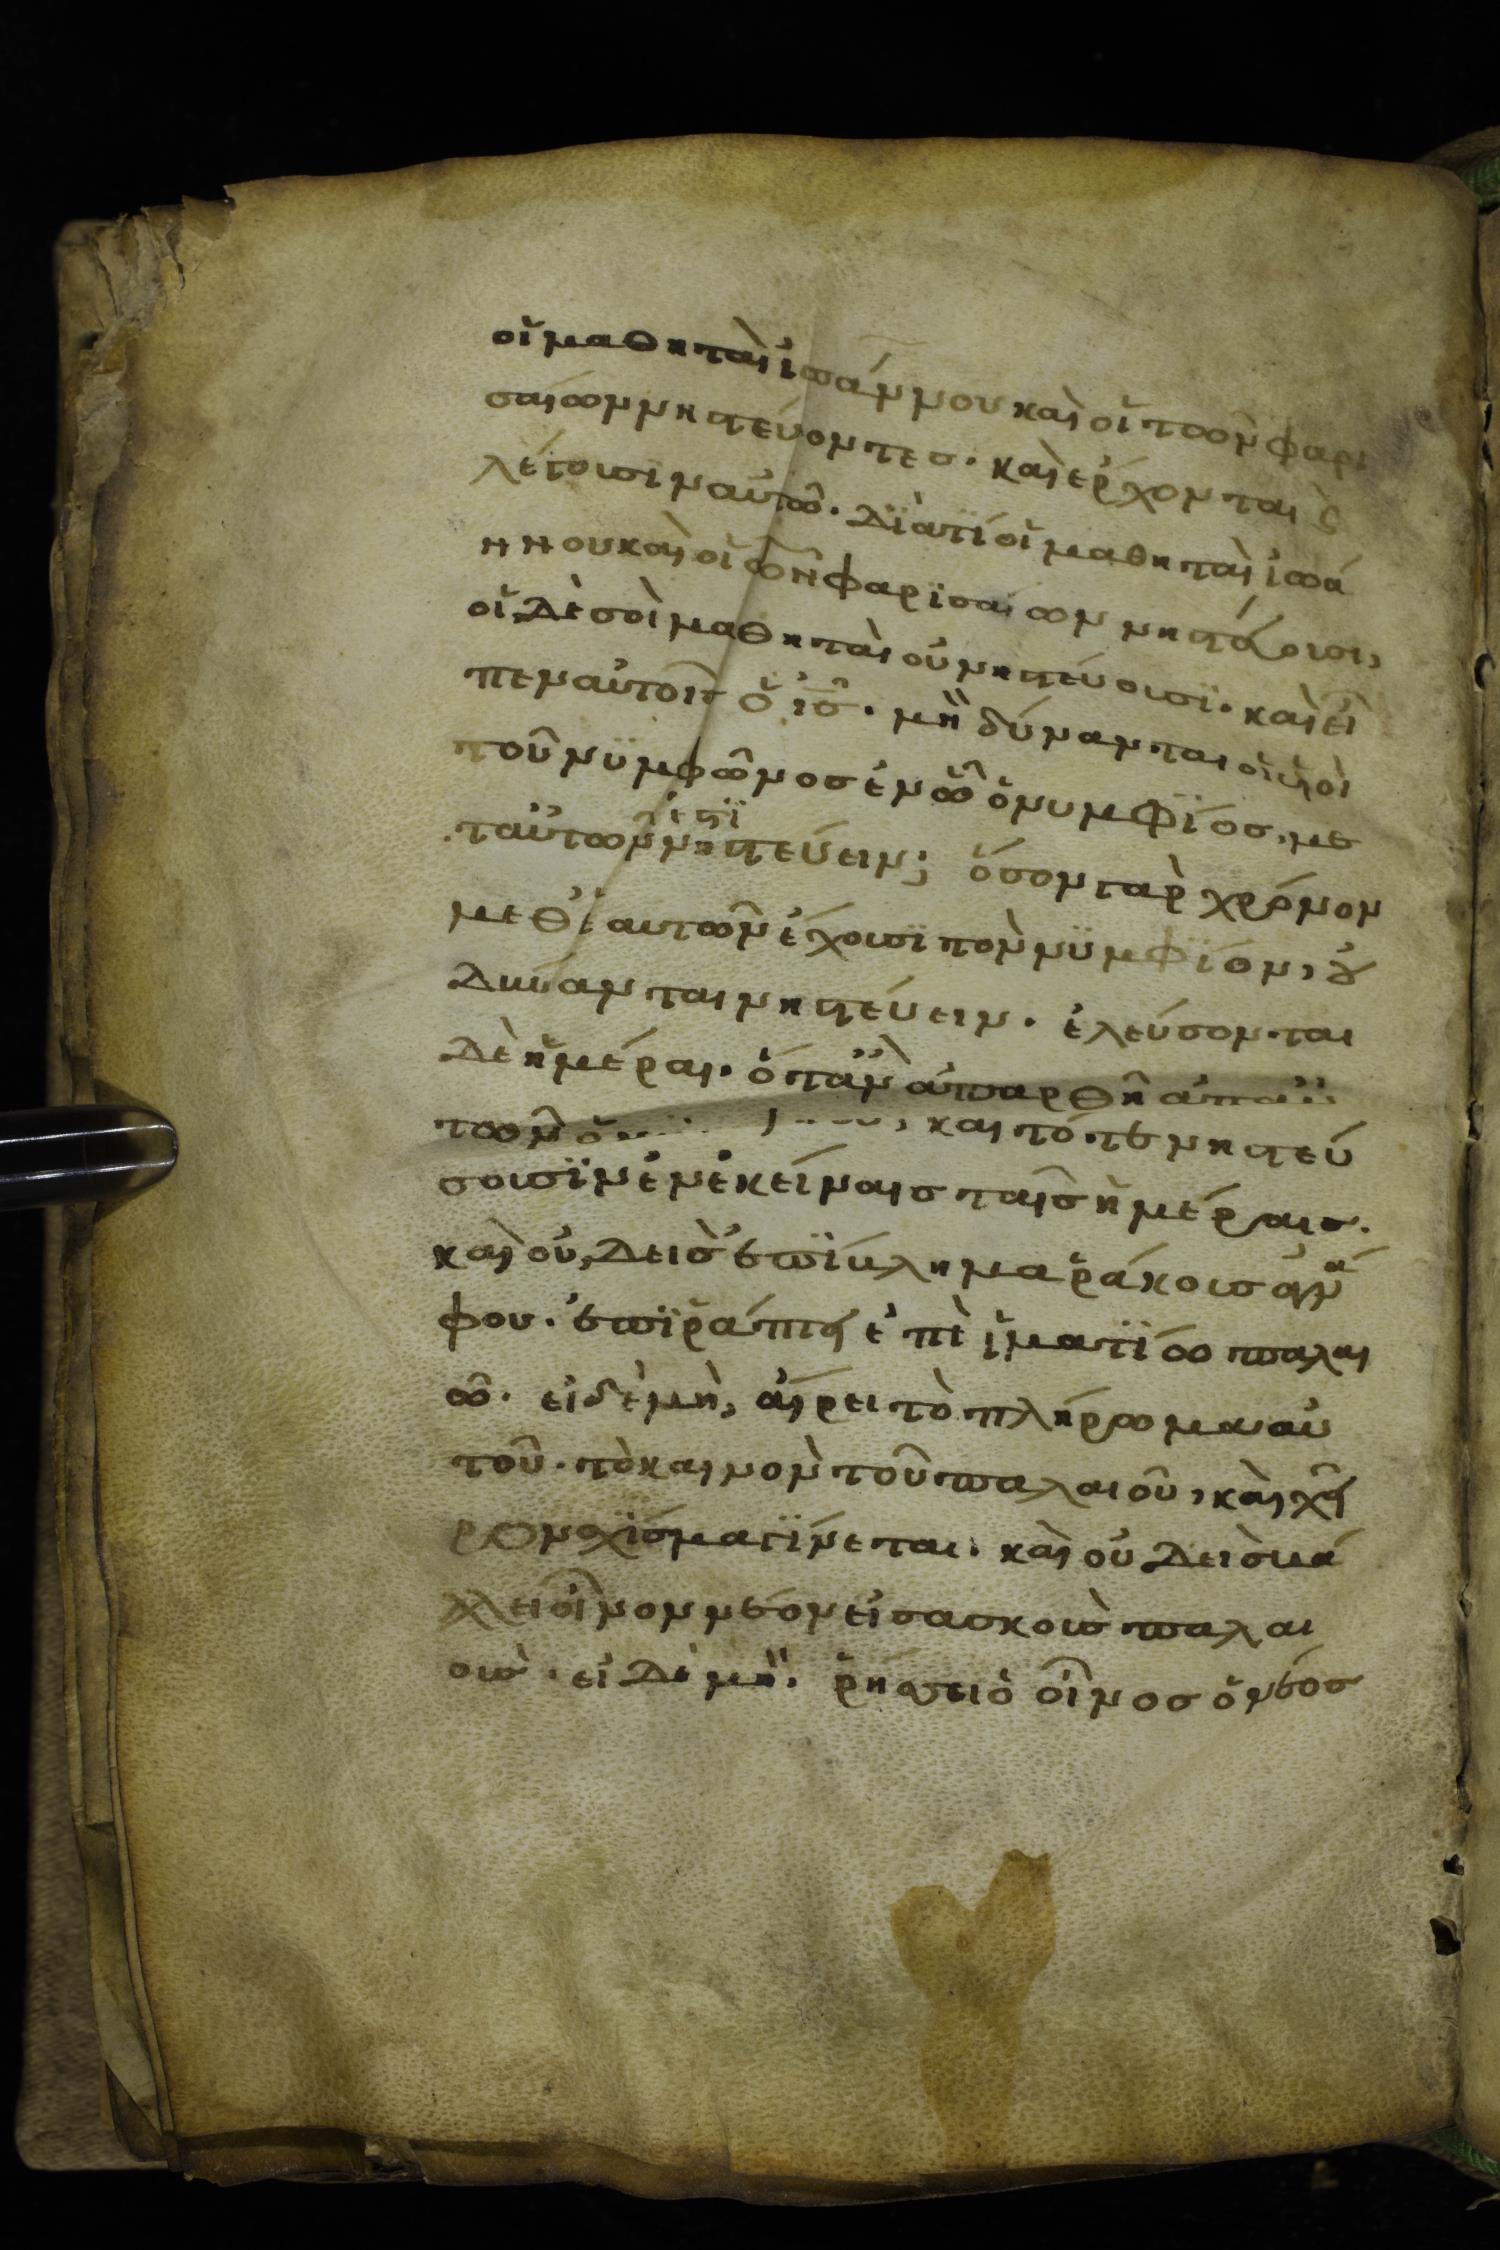 οἱ μαθηταὶ ἰωάννου καὶ οἱ τῶν φαρι
σαίων νηστεύοντες· καὶ ἔρχονται ϗ
λέγουσιν αὐτῶ· διατί οἱ μαθηταὶ ἰωά
ννου καὶ οἱ τῶν φαρισαίων νηστεύουσι,
οἱ δὲ σοὶ μαθηταὶ οὐ νηστεύουσι· καὶ εἶ
πεν αὐτοῖς ὁ ἰς̅· μὴ δύνανται οἱ υἱοὶ
τοῦ νυμφῶνος ἐν ὧ ὁ νυμφίος με
τ' αὐτῶν ἐστι νηστεύειν; ὅσον γὰρ χρόνον
μεθ' ἑαυτῶν ἔχουσι τὸν νυμφίον, οὐ
δύνανται νηστεύειν· ἐλεύσονται
δὲ ἡμέραι· ὅταν ἀπαρθῆ ἀπ' αὐ
τῶν ὁ , καὶ τότε νηστεύ
σουσιν ἐν ἐκείναις ταῖς ἡμέραις·
καὶ οὐδεὶς ἐπίβλημα ῥάκους ἀγνά
φου· ἐπιράπτει ἐπὶ ἱματίω παλαι
ῶ· εἰ δὲ μή, αἴρει τὸ πλήρωμα αὐ
τοῦ· τὸ καινὸν τοῦ παλαιοῦ, καὶ χεῖ
ρον σχίσμα γίνεται· καὶ οὐδεὶς βά
λλει οἶνον νέον εἰς ἀσκοὺς παλαι
οὺς· εἰ δὲ μή· ῥήσσει ὁ οἶνος ὁ νέος